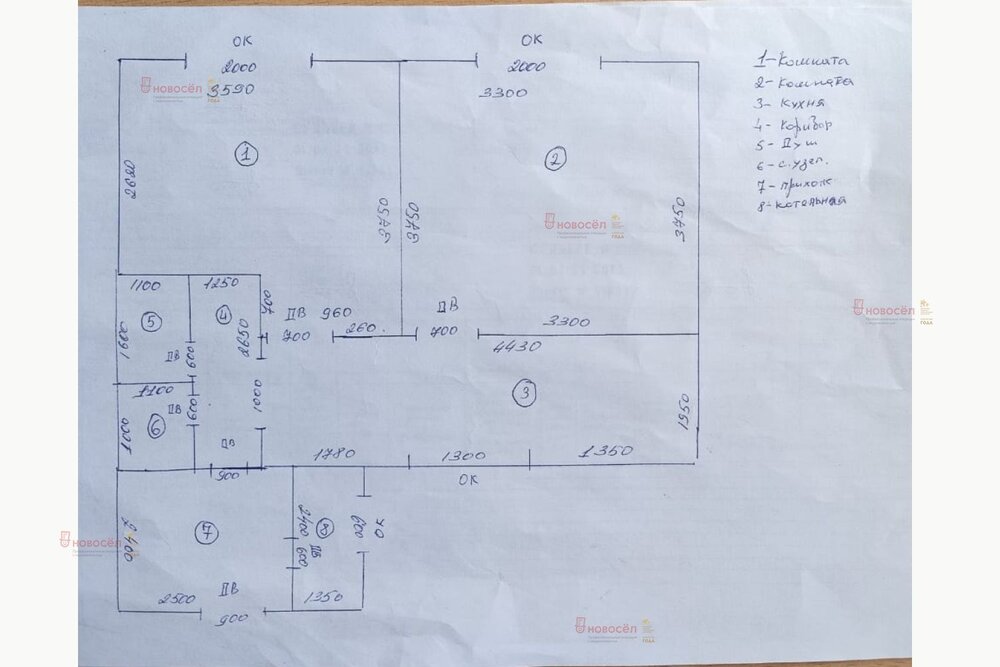 ОК
2000
3590
ОК
2000
3300
1-Комната
2-Комната
3- Кухня
4- Коридор
5- Душ
6- с.узел.
7- прихож
8-котельная
новосёл
1
2
2620
3750
3750
3750
новосёл
ГОДА
1100
1250
700
5
4
ДВ
960
ДВ
700
260.
700
3300
4430
новосёл
ГОДА
1600
ДВ
600
2650
3
1100
ДВ
600
1000
1950
1000
6
ДВ
900
1780
1300
1350
ОК
новосёл
2400
7
2400
8
ДВ
600
600
ОК
2500
ДВ
900
1350
новосёл
ГОДА